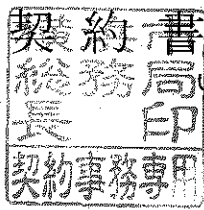 契約書
総務局
長印
契約事務専用